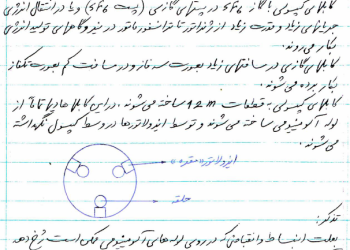 کابلهای کپسولی با گاز SF6 در پستهای گازی (پست SF6) و یا در انتقال انرژی
جریانهای زیاد و قدرت زیاد از ژنراتور تا ترانسفورماتور در نیروگاههای تولید انرژی
بکار می‌روند.
کابلهای گازی در مسافتهای زیاد بصورت سه فاز و در مسافت کم بصورت تکفاز
بکار برده می‌شوند.
کابلهای کپسولی به قطعات 12m ساخته می‌شوند. در این کابلها هادیها از
لوله آلومینیومی ساخته می‌شوند و توسط ایزولاتورها در وسط کپسول نگهداشته
می‌شوند.
ایزولاتور «مقره»
حلقه
تذکر:
بعلت انبساط و انقباضی که در روی لوله‌های آلومینیومی ممکن است رخ دهد